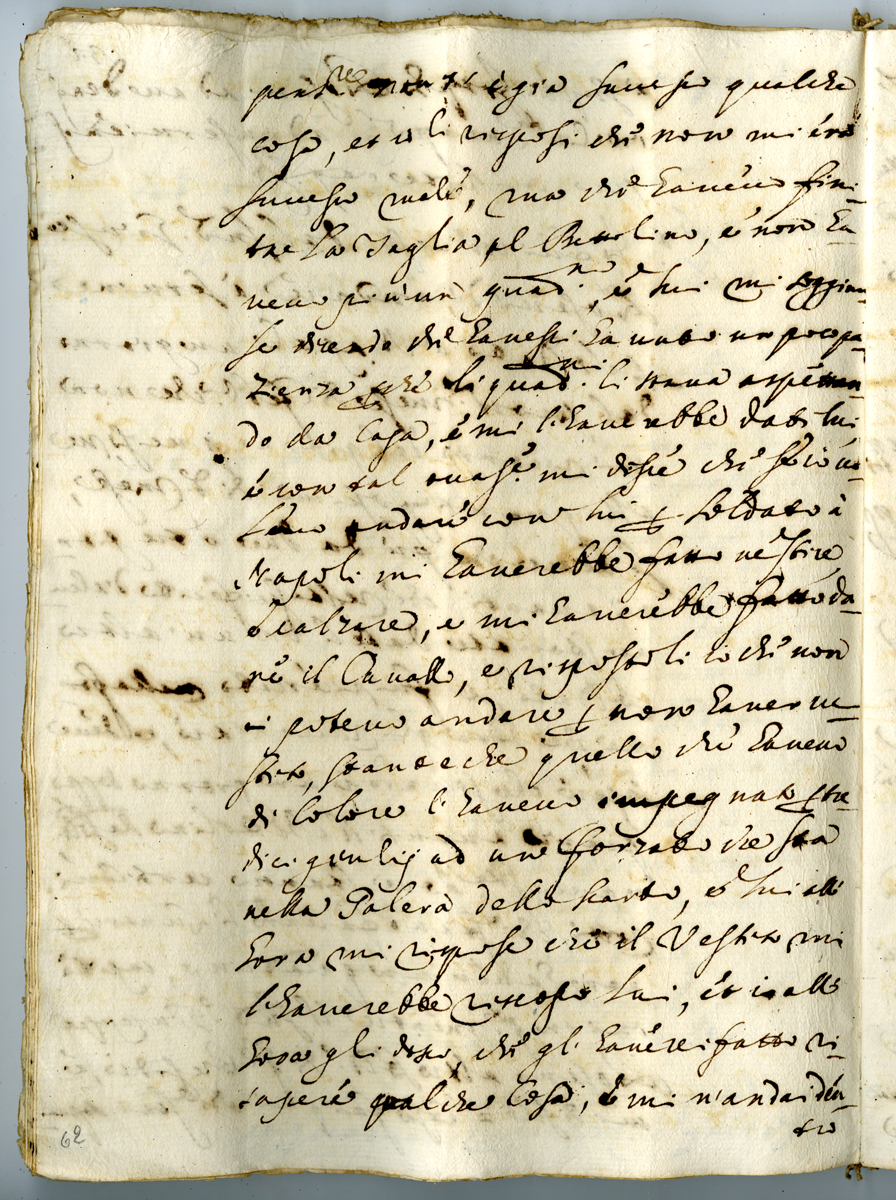 è già successo qualche
cosa, et io li risposi che non mi era
successo male, ma che havevo fini-
to La Paglia al Bettolino, e non ha-
vevo più un quad.no, e lui mi soggiun-
se dicendo che havessi havuto un poco pa-
zienza che li quad.ni li stava aspettan-
do da Casa, e mi l'haverebbe dati lui
e con tal mi disse che se io vo-
levo andare con lui p soldato à
Napoli mi haverebbe fatto vestire,
e calzare, e mi haverebbe fatto da-
re il Cavallo, e rispostoli io che non
ci potevo andare p non haver ve-
stito, stante che quello che havevo
di Colore l'havevo impegnato p tre-
dici giulij ad un forzato che sta
nella Galera dello Scarto, e lui all'
hora mi rispose che il Vestito mi
l'haverebbe riscosso lui, et io all'
hora gli dissi, che gl'haverei fatto ri-
sapere qualche Cosa, e mi n'andai den-
tro
62